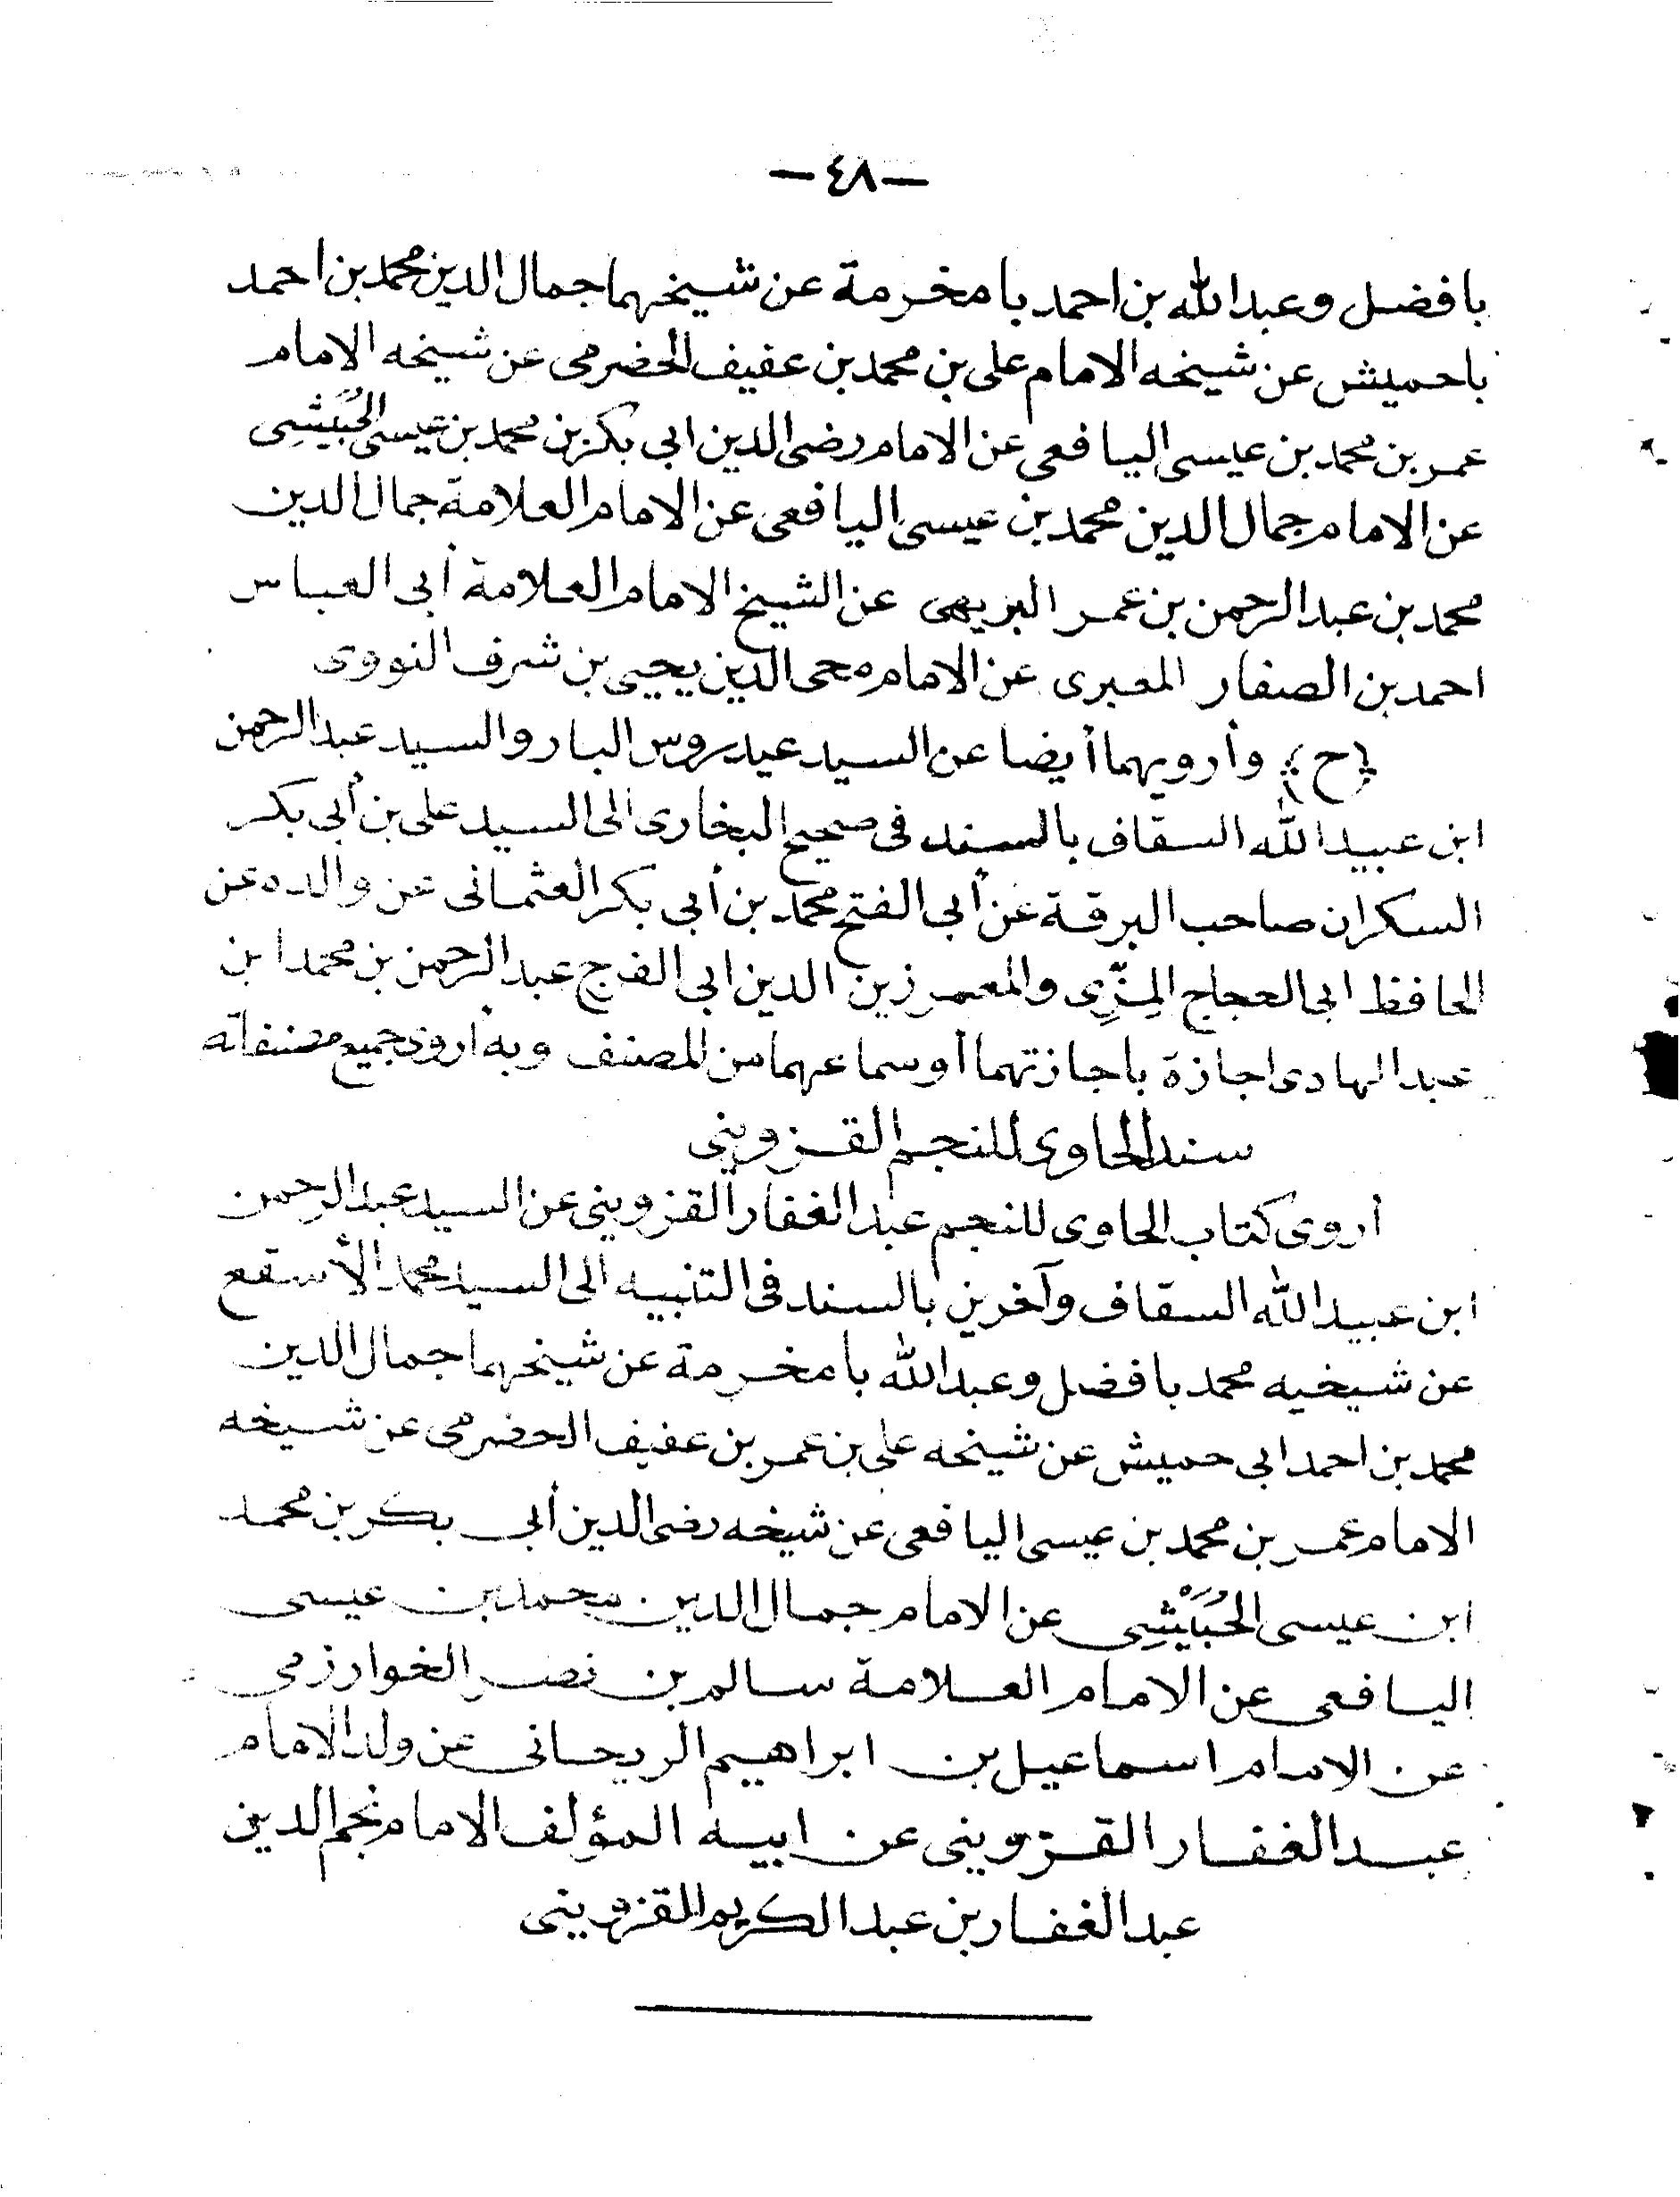 —٤٨—
بافضل وعبدالله بن احمد بامخرمة عن شيخهما جمال الدين محمد بن احمد
باحميش عن شيخه الامام على بن محمد بن عفيف الحضرمى عن شيخه الامام
عمر بن محمد بن عيسى اليافعى عن الامام رضى الدين ابى بكر بن محمد بن عيسى الحُبَيْشِى
عن الامام جمال الدين محمد بن عيسى اليافعى عن الامام العلامة جمال الدين
محمد بن عبدالرحمن بن عمر البريهى عن الشيخ الامام العلامة أبى العباس
احمد بن الصفار المعبرى عن الامام محى الدين يحيى بن شرف النووى
(ح) وأرويهما أيضا عن السيد عيدروس البار والسيد عبدالرحمن
ابن عبيدالله السقاف بالسند فى صحيح البخارى الى السيد على بن أبى بكر
السكران صاحب البرقة عن أبى الفتح محمد بن أبى بكر العثمانى عن والده عن
الحافظ ابى الحجاج المِزِّى والمعمر زين الدين ابى الفرج عبدالرحمن بن محمد ابن
عبدالهادى اجازة باجازتهما أوسماعهما من المصنف وبه أروى جميع مصنفاته
سند الحاوى للنجم القزوينى
أروى كتاب الحاوى للنجم عبدالغفار القزوينى عن السيد عبدالرحمن
ابن عبيدالله السقاف وآخرين بالسند فى التنبيه الى السيد محمد الأسقع
عن شيخيه محمد بافضل وعبدالله بامخرمة عن شيخهما جمال الدين
محمد بن احمد ابى حميش عن شيخه على بن عمر بن عفيف الحضرمى عن شيخه
الامام عمر بن محمد بن عيسى اليافعى عن شيخه رضى الدين أبى بكر بن محمد
ابن عيسى الحُبَيْشِى عن الامام جمال الدين محمد بن عيسى
اليافعى عن الامام العلامة سالم بن نصر الخوارزمى
عن الامام اسماعيل بن ابراهيم الريحانى عن ولد الامام
عبدالغفار القزوينى عن ابيه المؤلف الامام نجم الدين
عبدالغفار بن عبدالكريم القزوينى